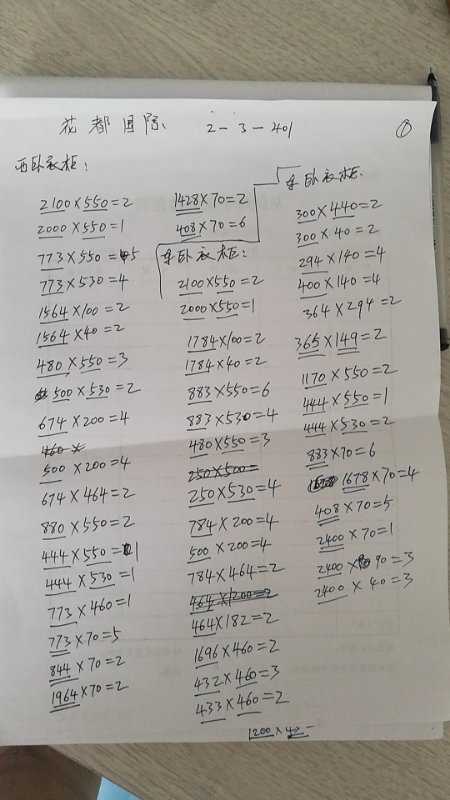 花都国际 2-3-401 ①
西卧衣柜:
2100×550=2
2000×550=1
773×550=5
773×530=4
1564×100=2
1564×40=2
480×550=3
500×530=2
674×200=4
460×
500×200=4
674×464=2
880×550=2
444×550=1
444×530=1
773×460=1
773×70=5
844×70=2
1964×70=2
1428×70=2
408×70=6
东卧衣柜:
2100×550=2
2000×550=1
1784×100=2
1784×40=2
883×550=6
883×530=4
480×550=3
250×500=
250×530=4
784×200=4
500×200=4
784×464=2
464×1200=2
464×182=2
1696×460=2
432×460=3
433×460=2
1200×42-
东卧衣柜.
300×440=2
300×40=2
294×140=4
400×140=4
364×294=2
365×149=2
1170×550=2
444×550=1
444×530=2
883×70=6
1678×70=4
408×70=5
2400×70=1
2400×90=3
2400×40=3